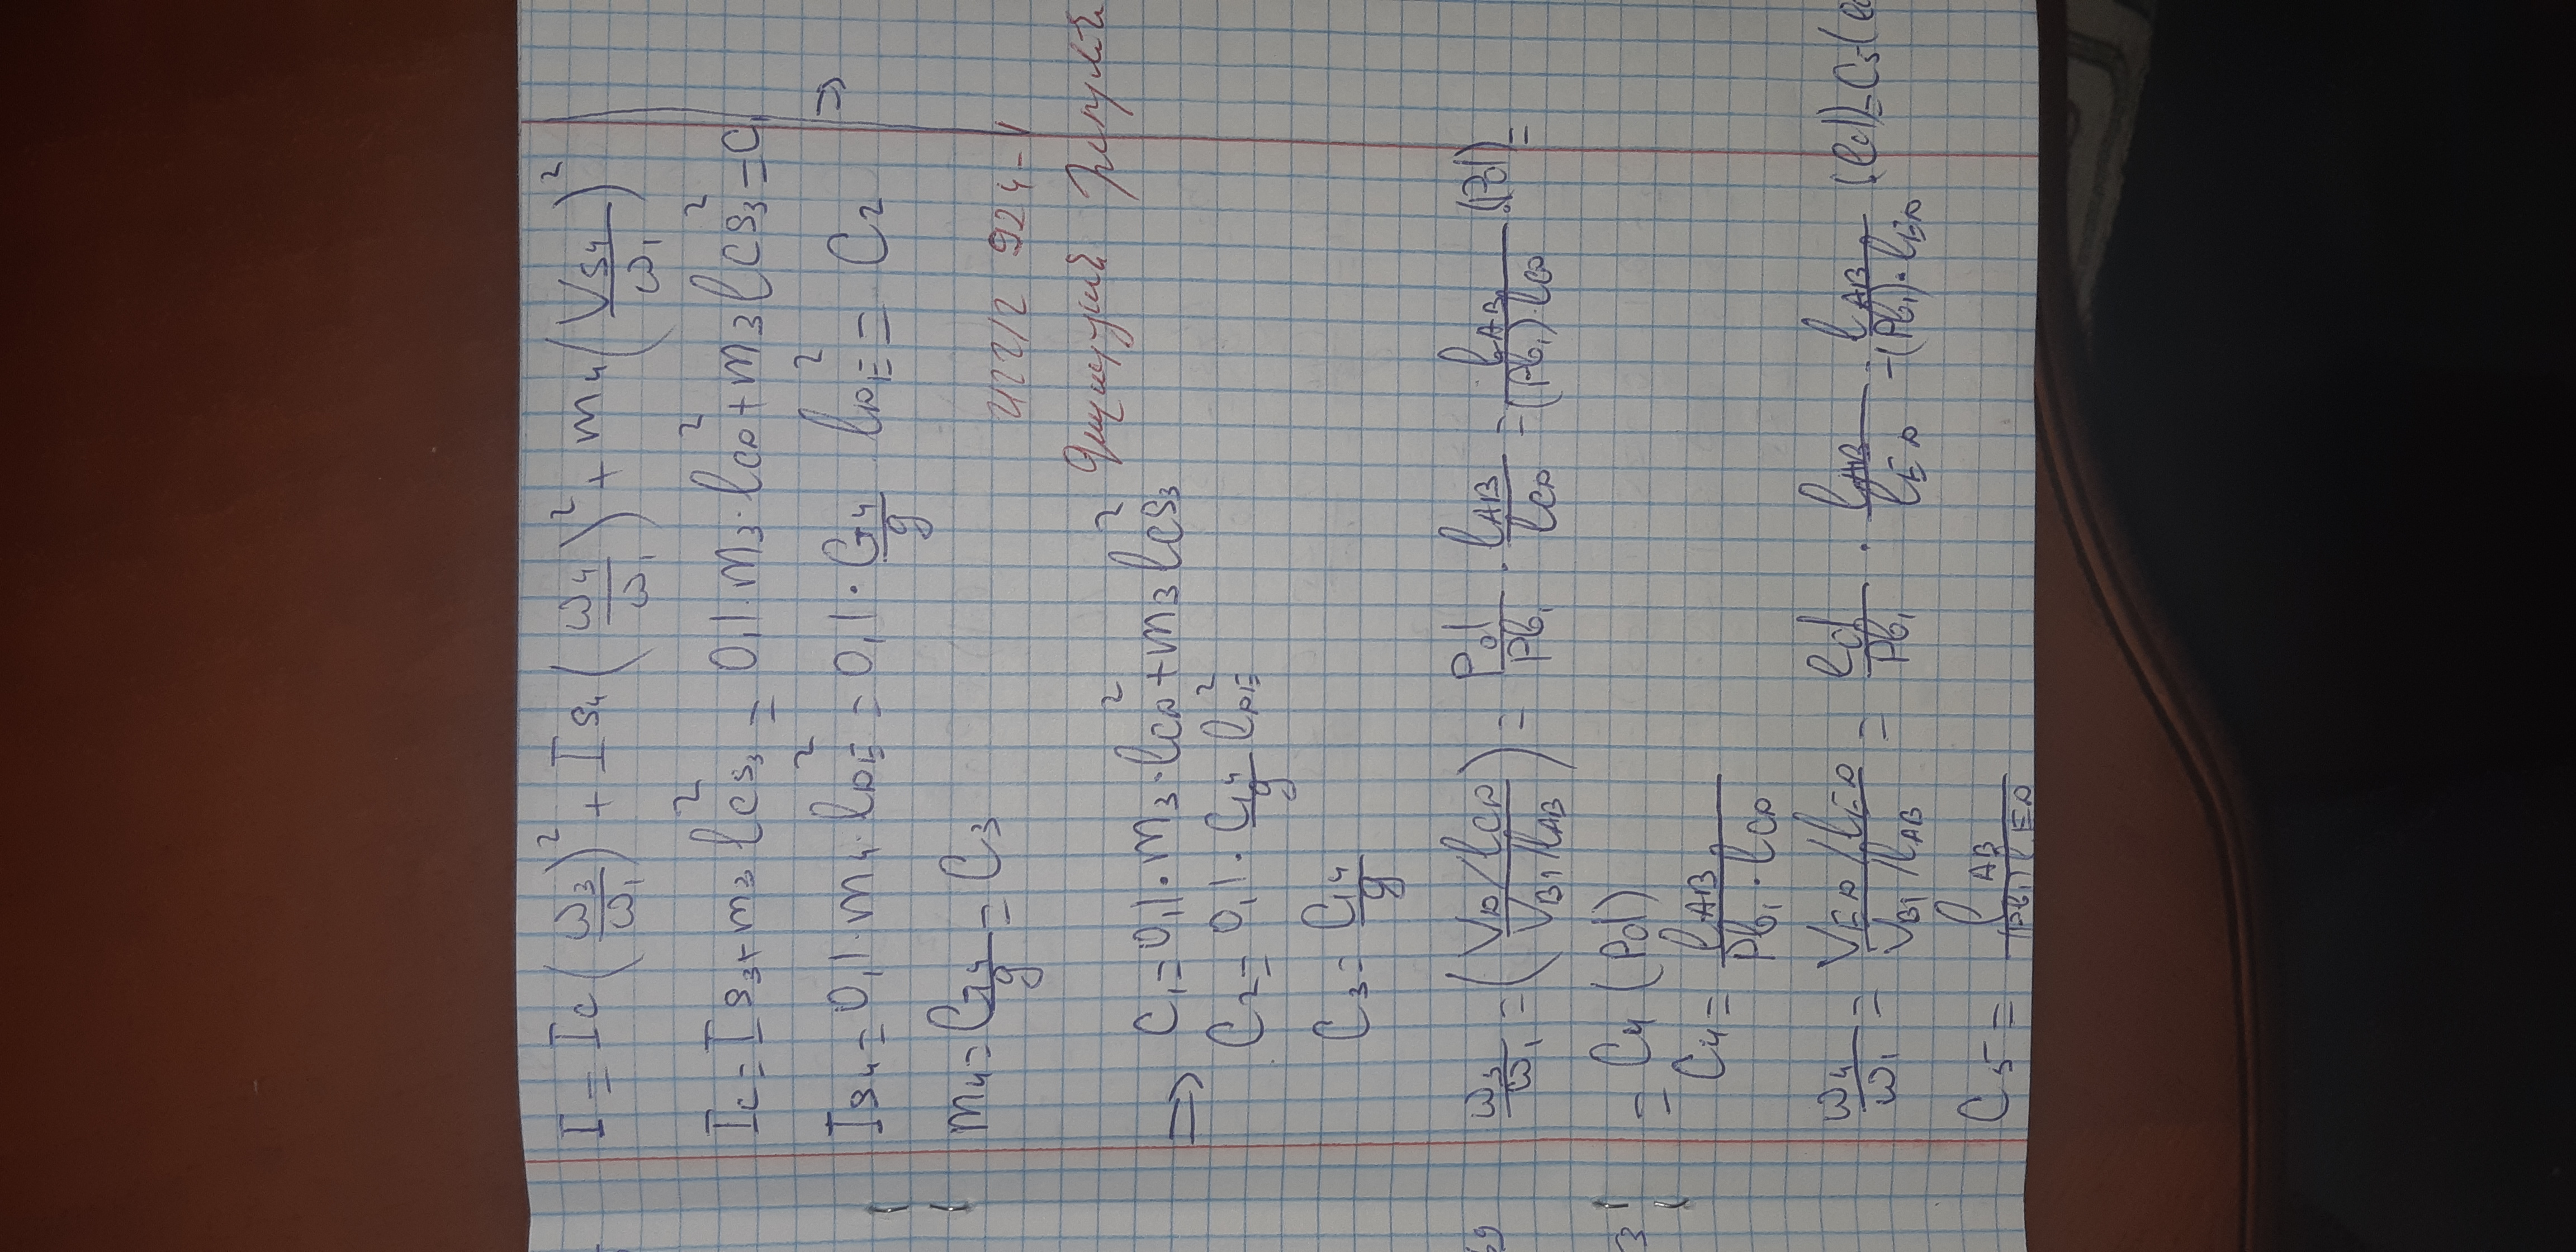 I = Ic (ω₃/ω₁)² + Is₄ (ω₄/ω₁)² + m₄ (Vs₄/ω₁)²
Ic = Is₃ + m₃ l²cs₃ = 0,1·m₃·l²cD + m₃ l²cs₃ = C₁
Is₄ = 0,1·m₄·l²DE = 0,1·G₄/g l²DE = C₂ ⇒
m₄ = G₄/g = C₃
924-1
⇒ C₁ = 0,1·m₃·l²cD + m₃ l²cs₃
C₂ = 0,1·G₄/g l²DE
C₃ = G₄/g
ω₃/ω₁ = ((VD/lCD)/(VB₁/lAB)) = Pd/Pb₁ · lAB/lCD = lAB/((Pb₁)·lCD) ·(Pd) =
= C₄ (Pd)
C₄ = lAB/(Pb₁·lCD)
ω₄/ω₁ = (VED/lED)/(VB₁/lAB) = ed/Pb₁ · lAB/lED = lAB/((Pb₁)·lED) ·(ed) = C₅(
C₅ = lAB/((Pb₁) lED)